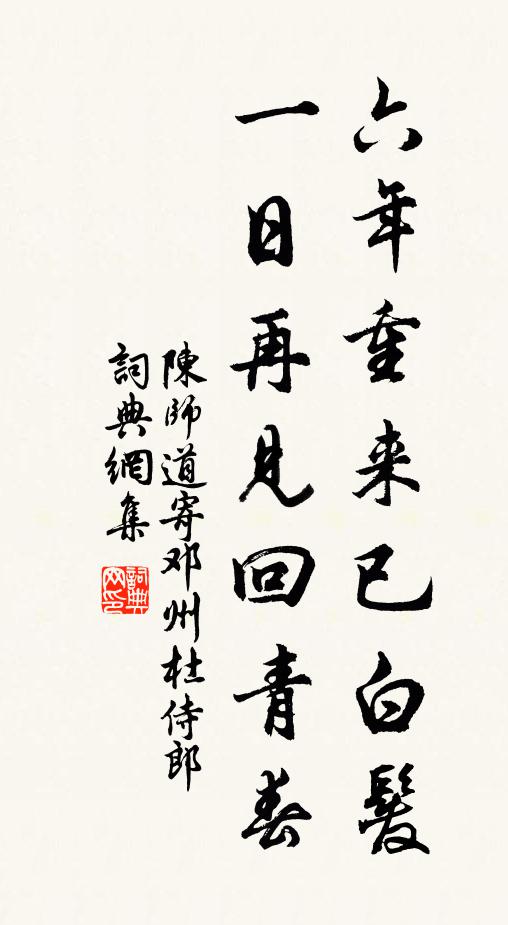 六年重来已白髮
一日再見回青春
陳師道寄邓州杜侍郎
詞典網集
詞典网印